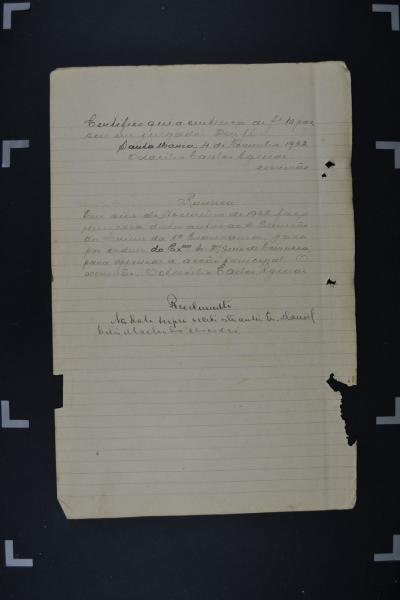 Certifico que a sentença de fs 10 pas
sou em julgado. Dou fé.
Santa Maria, 4 de Novembro 1932
Odacilio Carlos Aguiar
escrivão
Remessa
Em seis de Novembro de 1932 faço
remessa destes autos ao Escrivão
do da 1ª para
por ordem do Exmo Sr. Dr Juiz de Comarca
para a acção principal. O
escrivão, Odacilio Carlos Aguiar
Recebimento
Na data supra recebi estes autos. Eu, Manoel
escrivão